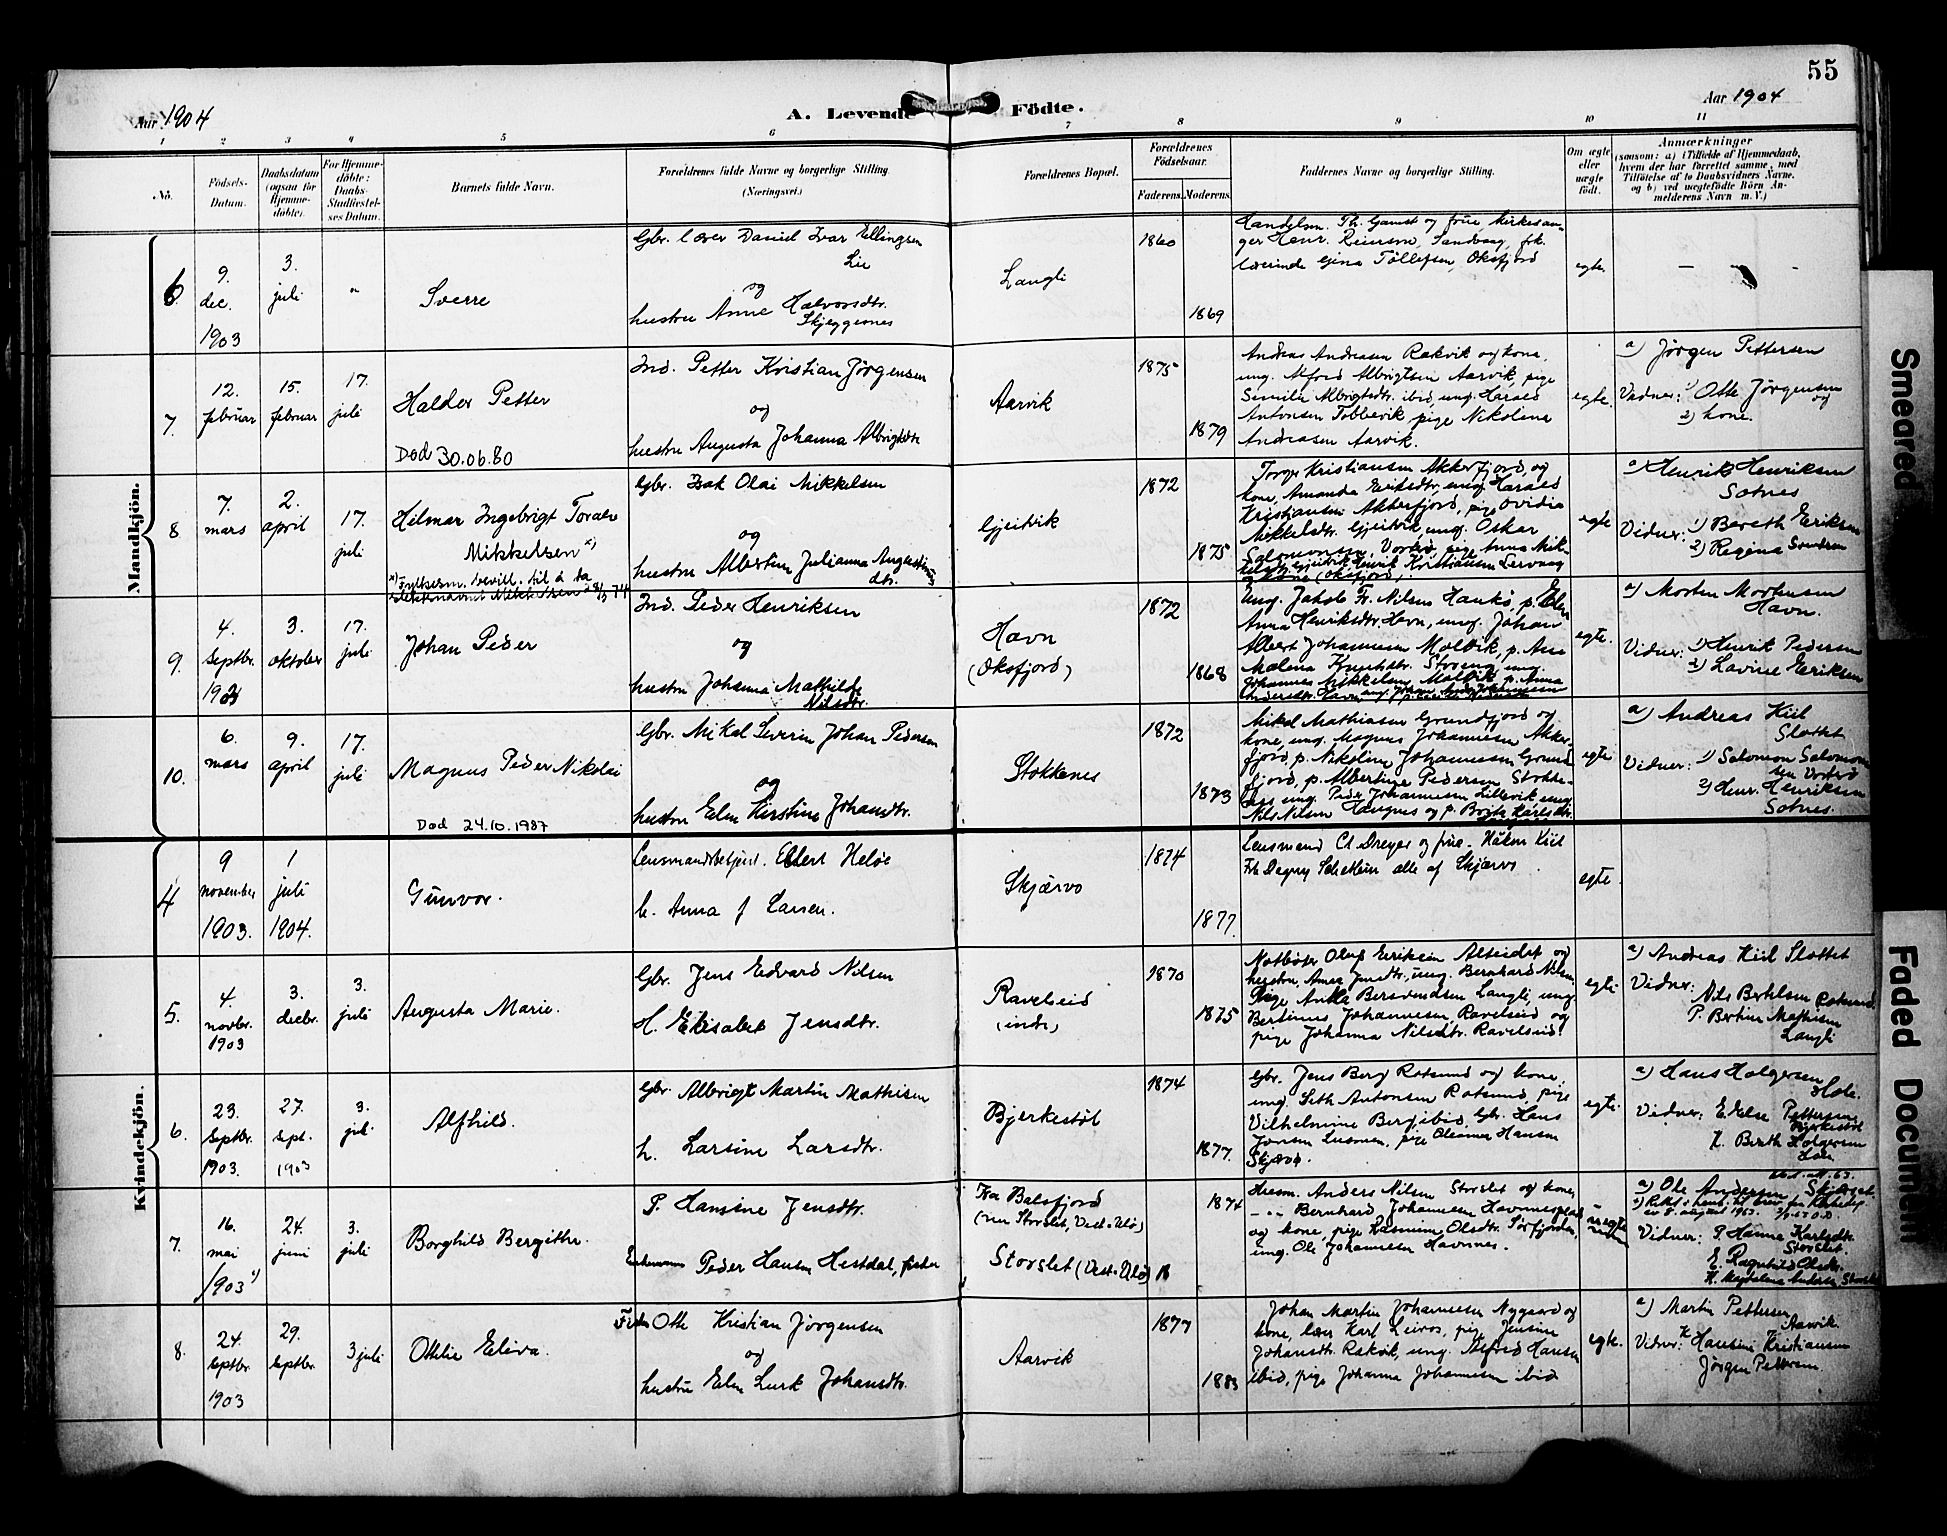 55
Aar 1904
A. Levende Födte.
Aar 1904
1 2 3 4 5 6 7 8 9 10 11
No.
Födsels-Datum.
Daabsdatum (ogsaa for Hjemme-döbte).
For Hjemme-döbte: Daabs-Stadfæstel-ses Datum.
Barnets fulde Navn.
Forældrenes fulde Navne og borgerlige Stilling.
(Næringsvei.)
Forældrenes Bopæl.
Forældrenes Födselsaar.
Faderens.
Moderens.
Faddernes Navne og borgerlige Stilling.
Om ægte eller uægte födt.
Anmærkninger
(saasom: a) i Tilfælde af Hjemmedaab,
hvem der har forrettet samme, med
Tilföielse af to Daabsvidners Navne,
og b) ved uægtefödte Börn An-
melderens Navn m. V.)
Mandkjön.
6
9. dec. 1903
3. juli
"
Sverre
Gbr. lærer Daniel Ivar Ellingsen
Lie
og
hustru Anne Halvorsdtr.
Skjeggesnes
Langli
1860
1869
Handelsm. Th. Gamst og frue Kirkesan-
ger Henr. Reiersen, Sandvaag, frk.
lærerinde Gina Tollefsen, Oksfjord
egte.
7.
12. februar
15. februar
17. juli
Haldor Petter
Død 30.06.80
Ind. Petter Kristian Jørgensen
og
hustru Augusta Johanna Albrigtsdtr
Aarvik
1875
1879
Andreas Andreasen Rakvik og kone,
ung. Alfred Albrigtsen Aarvik, pige
ibid ung. Harald
Antonsen pige Nikoline
Andreasen Aarvik.
egte.
a) Jørgen Pettersen
Vidner: 1) Otto Jørgensen
og
2) kone.
8
7. mars
2. april
17. juli
Hilmar Ingebrigt
Mikkelsen x)
x) Fylkesm. bevill. til å ta
slektsnavnet Mikkelsen
Gbr. Isak Olai Mikkelsen
og
hustru Albertine Julianna Augustinus
dtr.
Gjeitvik
1872
1875
Kristiansen Akkerfjord, og
kone, Amanda Eriksdtr, ung Harald
Kristiansen Akkerfjord, pige Ovidia
Mikkelsdtr. Gjeitvik, ung. Oskar
Salomonsen, Vorterø, pige Anna Mik-
Gjeitvik, Henrik Kristiansen Lervaag
og kone (Oksfjord).
egte
a) Henrik Henriksen
Sotnes
Vidner: 1) Bereth Eriksen
2) Regina
9.
4. Septbr. 1903
3. oktober
17. juli
Johan Peder
Ind. Peder Henriksen
og
hustru Johanna Mathilde
Nilsdtr.
Havn
(Oksfjord)
1872
1868
Ung. Jakob Fr. Nilsen Haukø, p. Elen
Anna Henriksdtr. Havn, ung. Johan
Albert Johannesen Molvik, p. Ane
Malena Storeng, ung.
Johannes Mikkelsen Molvik p. Anna
egte.
a) Morten Mortensen
Havn.
Vidner: 1) Henrik Pedersen
2) Lovise Eriksen
10.
6. mars
9. april
17. juli
Magnus Peder Nikolai
Død 24.10.1987
Gbr. Mikal Severin Johan Pedersen
og
hustru Elen Kirstine Johansdtr.
Stokkenes
1872
1873
Mikal Mathiasen Grundfjord og
kone, ung. Magnus Johannesen Akker-
fjord, p. Nikoline Johannesen Grund-
fjord, p. Albertine Pedersen Stokke-
nes ung. Peder Johannesen Lillevik ung.
Nils Nilsen Haugnes og p. Karlsdtr.
egte
a) Andreas Kiil
Slottet
Vidner: 1) Salomon Salomon-
sen Vorterø
2) Henr. Henriksen
Sotnes.
Kvindekjön.
4
9 november 1903.
1 juli 1904.
Gunvor.
Lensmandsbetjent. Ellert Heløe
h. Anna J Larsen.
Skjærvø
1874
1877.
Lensmand Cl. Dreyer og frue. Håkon Kiil
Frk Dagny alle af Skjærvø
egte.
5.
4. novbr. 1903
3. decbr.
3. juli
Augusta Marie.
Gbr. Jens Edvard Nilsen
H. Elisabet Jensdtr.
Ravelseid
(indr.)
1870
1875
Notbøter Oluf Eriksen Alteidet og
hustru, Anna Jensdtr., ung. Bernhard Nilsen,
Pige Anna Bersvendsen Langli, ung.
Bertinus Johannesen Ravelseid og
pige Johanna Nilsdtr. Ravelseid.
egte
a) Andreas Kiil Slottet
Vidner:
Nils Bertelsen Rotsund
P. Bertine Mathisen
Langli
6.
23. Septbr. 1903.
27. Sept. 1903
3. juli
Alfhild.
Gbr. Albrigt Martin Mathisen
h. Larsine Larsdtr.
Bjerkestøl
1874
1877.
Gbr. Jens Berg Rotsund og kone,
ung. Seth Antonsen Rotsund, pige
Vilhelmine Berg ibid, Gbr. Hans
Jensen pige Hansen
Skjærvø.
egte.
a) Hans Holgersen
Vidner: Edele Pettersen
Bjerkestøl
K. Berth Holgersen
7.
16. mai 1903 1)
24. juni
3. juli
Borghild Bergithe.
P. Hansine Jensdtr.
Enkemann Peder Hansen Hestdal, fisker
Fra Balsfjord
(nu Storslet, Vest-Ulø)
Storslet (Vest-Ulø)
1874
Husm. Anders Nilsen Storslet og kone,
-"- Bernhard Johannesen Havnnes
og kone, pige Rasmine Olsdtr. Sørfjorden,
ung. Ole Johannesen Havnnes.
uægte
a) Ole Andersen
Vidner: P. Hanna Karlsdtr.
Storslet.
E. Ragnhild Olsdtr.
K. Magdalena Andersen, Storslet
8.
24. septbr. 1903
29. septbr.
3 juli
Ottilie Eliva.
Fisker Otto Kristian Jørgensen
og
hustru Elen Lurk Johansdtr.
Aarvik
1877
1883
Johan Martin Johannesen Nygaard og
kone, lærer Karl Leiros, pige Jensine
Johansdtr. Rakvik, ung. Alfred Hansen
ibid, pige Johanna Johannesen ibid
egte.
a) Martin Pettersen
Aarvik.
Vidner: K Hansine Kristiansen
Jørgen Pettersen
Smeared
Faded Document